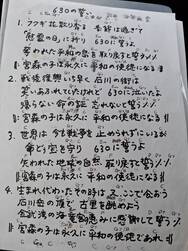 630の誓い
1. フクギ並ぶ 季節は過ぎて
「慰霊の日」に祈り 630に誓うよ
奪われた平和の 告げを誓うよ
‖:宮森の子は永久に 平和の使徒になる:‖
2. 戦後復興いち早く 石川の街は
笑いあふれていたけれど 630に泣いたよ
帰らない命の 忘れないで誓うよ
‖:宮森の子は永久に 平和の使徒になる:‖
3. 世界は 今も戦争を 止められずにいるが
命どぅ宝を守り 630に誓うよ
失われた 地球の自然 取り戻すと誓うよ
‖:宮森の子は永久に 平和の使徒になる:‖
4. 生まれ代わった その時は 又、ここで会おう
石川岳の 麓で 古里を眺めよう
金武湾の 海の恵みに 感謝して誓うよ
‖:宮森の子は永久に 平和の使徒であれ:‖